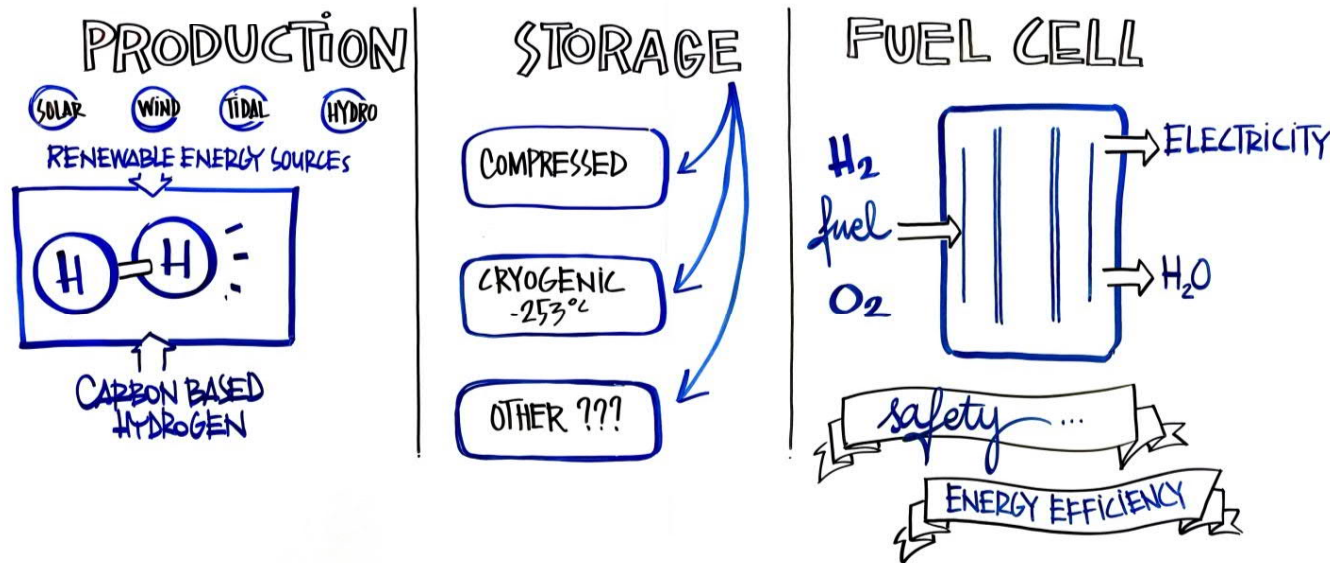 PRODUCTION
SOLAR
WIND
TIDAL
HYDRO
RENEWABLE ENERGY SOURCES
H
H
CARBON BASED
HYDROGEN
STORAGE
COMPRESSED
CRYOGENIC
-253°C
OTHER ???
FUEL CELL
H₂
fuel
O₂
ELECTRICITY
H₂O
safety ...
ENERGY EFFICIENCY